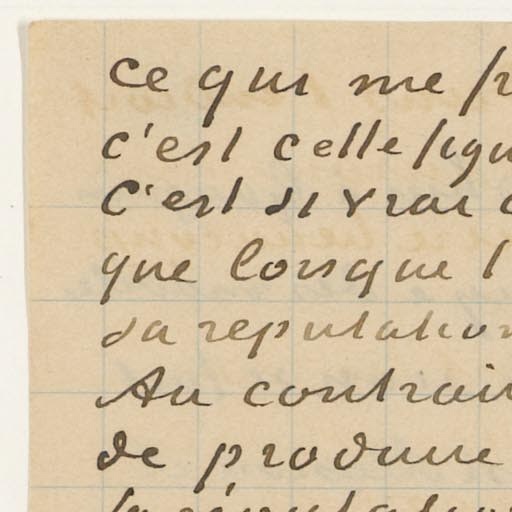 ce qui me
c'est cette
C'est si vrai
que lorsque l
sa reputation
Au contrai
de produire
la réputation